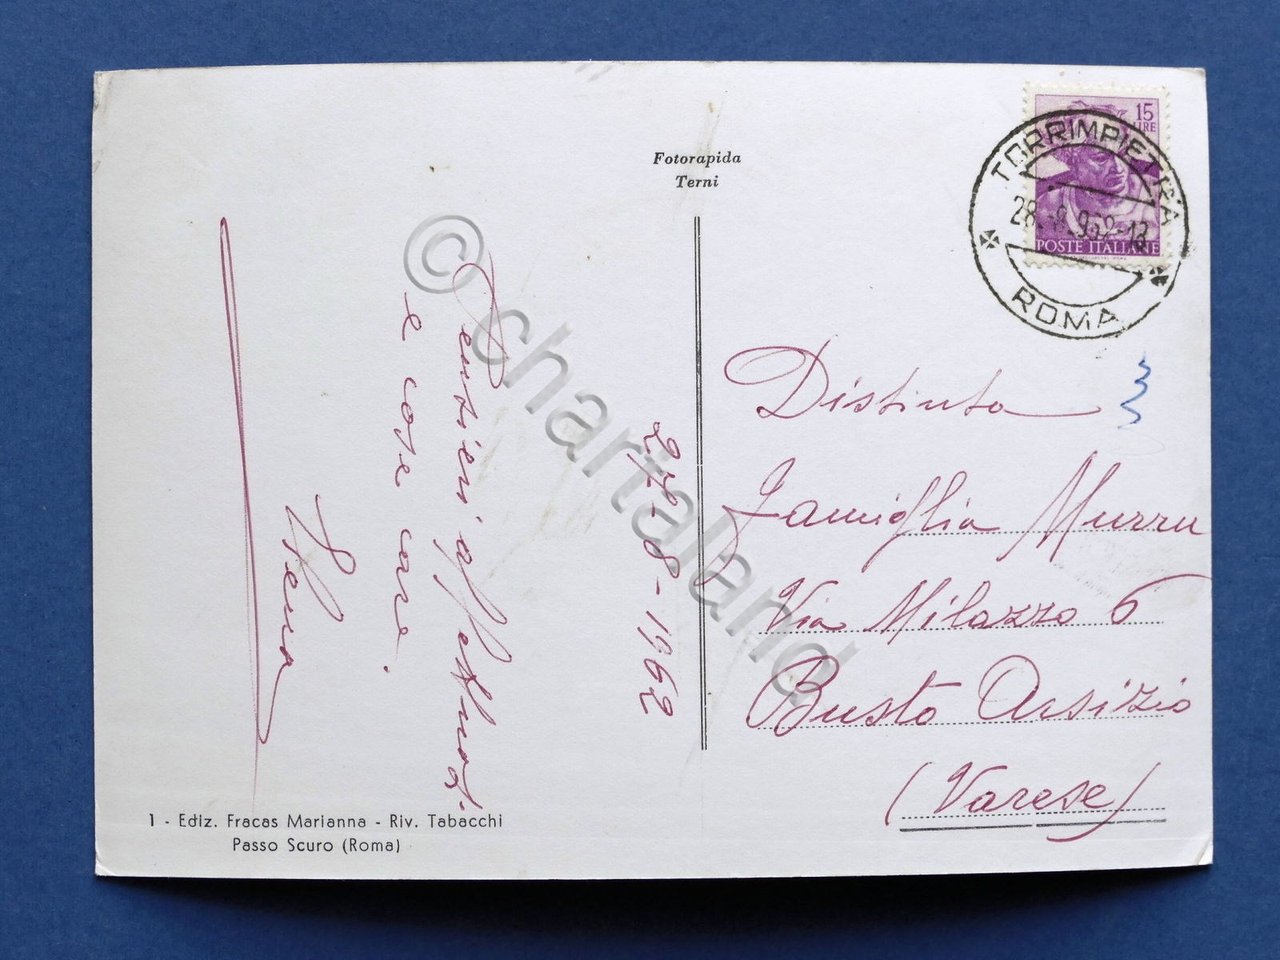 Fotorapida
Terni
15
LIRE
POSTE ITALIANE
TORRIMPIETRA
28.-8.962-18
ROMA
27-8-1962
Pensieri affettuosi
e cose care.
Distinta
Famiglia Murru
Via Milazzo 6
Busto Arsizio
(Varese)
1 - Ediz. Fracas Marianna - Riv. Tabacchi
Passo Scuro (Roma)
© chartaland